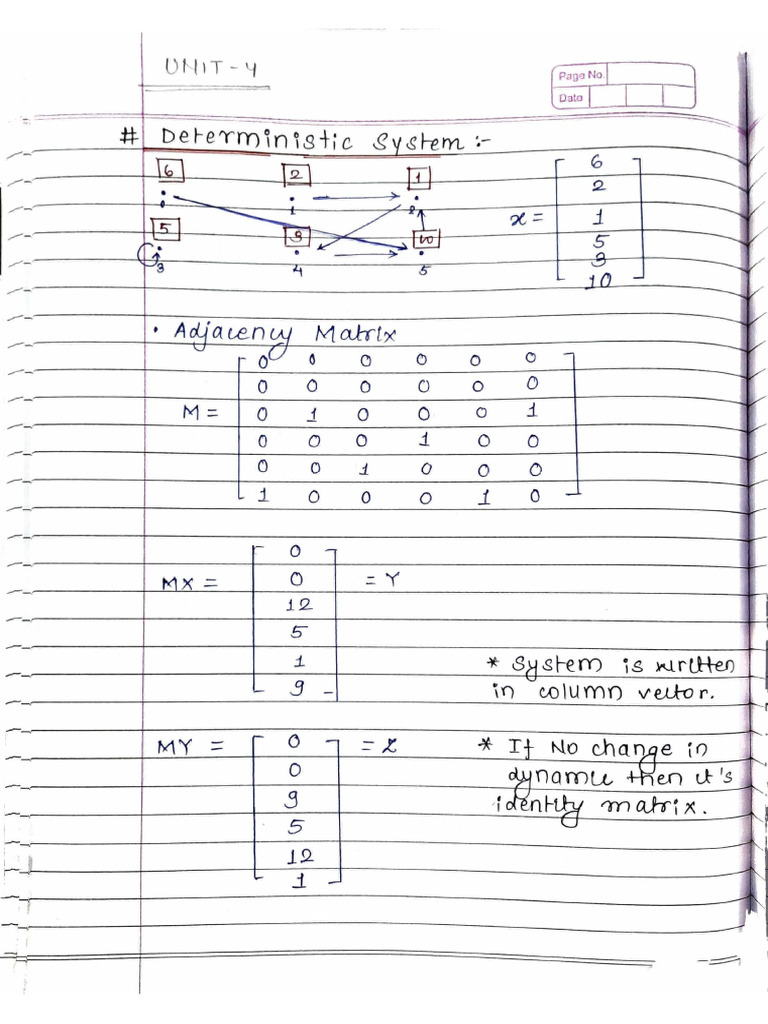 UNIT-4
Page No.
Date
# Deterministic System :-
6 2 1
0 1 2
5 3 10
3 4 5
x = [ 6 2 1 5 3 10 ]
• Adjacency Matrix
0 0 0 0 0 0
0 0 0 0 0 0
M = 0 1 0 0 0 1
0 0 0 1 0 0
0 0 1 0 0 0
1 0 0 0 1 0
0
MX = 0 = Y
12
5
1
9
* System is written
in column vector.
MY = 0 = Z
0
9
5
12
1
* If No change in
dynamic then it's
identity matrix.